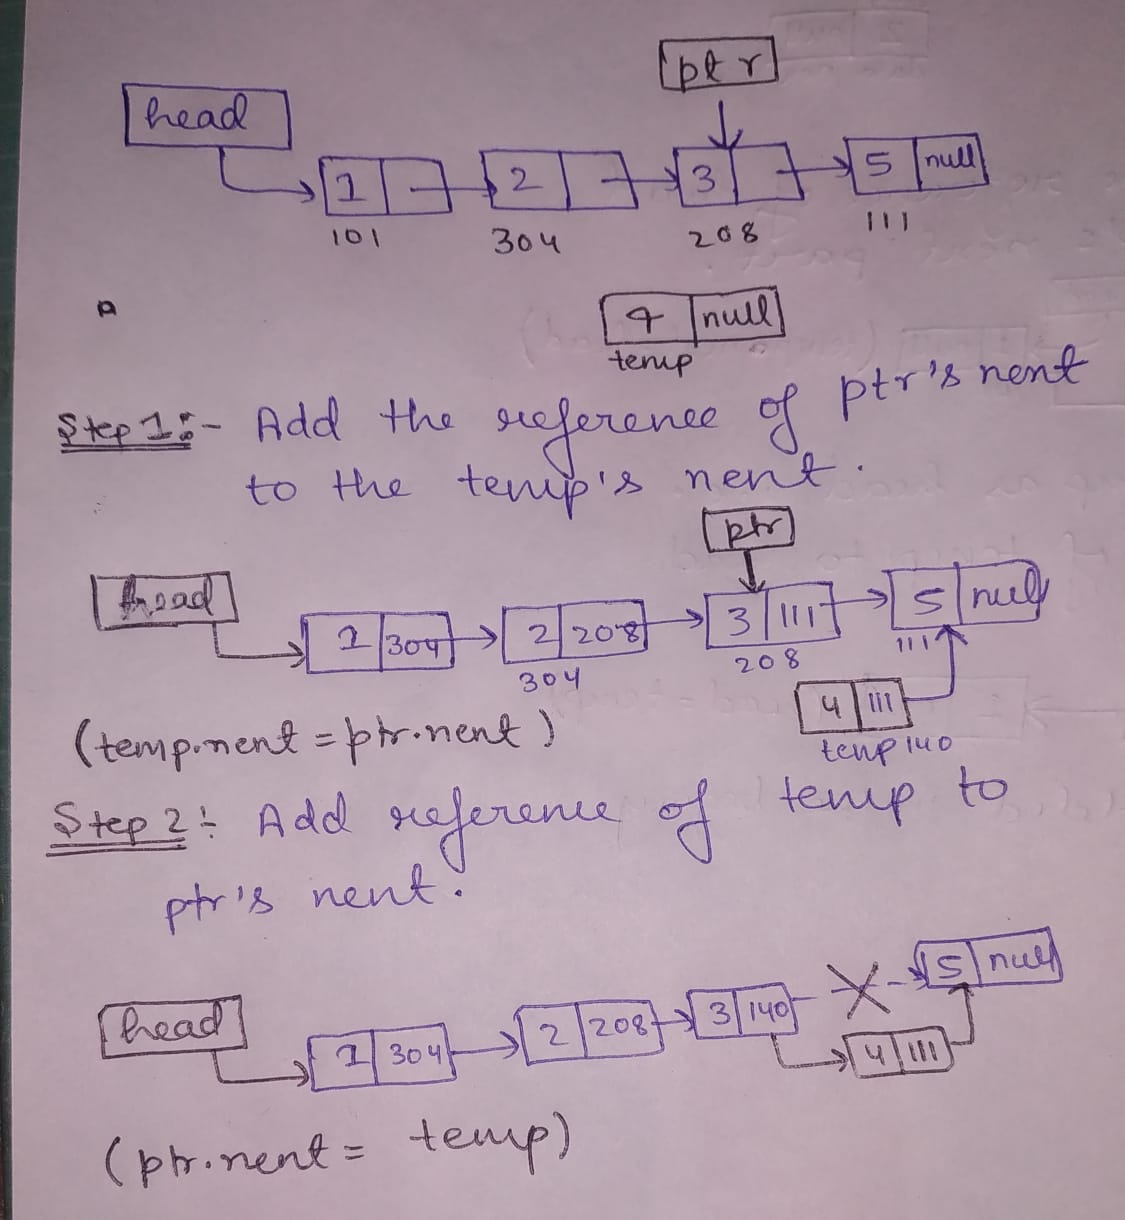 ptr
head
1 2 3 5 null
101 304 208 111
4 null
temp
Step 1:- Add the reference of ptr's nent
to the temp's nent.
ptr
head
1 304 2 208 3 111 5 null
304 208 111
4 111
(temp.nent = ptr.nent)
temp 140
Step 2:- Add reference of temp to
ptr's nent.
head
1 304 2 208 3 140 5 null
4 111
(ptr.nent = temp)